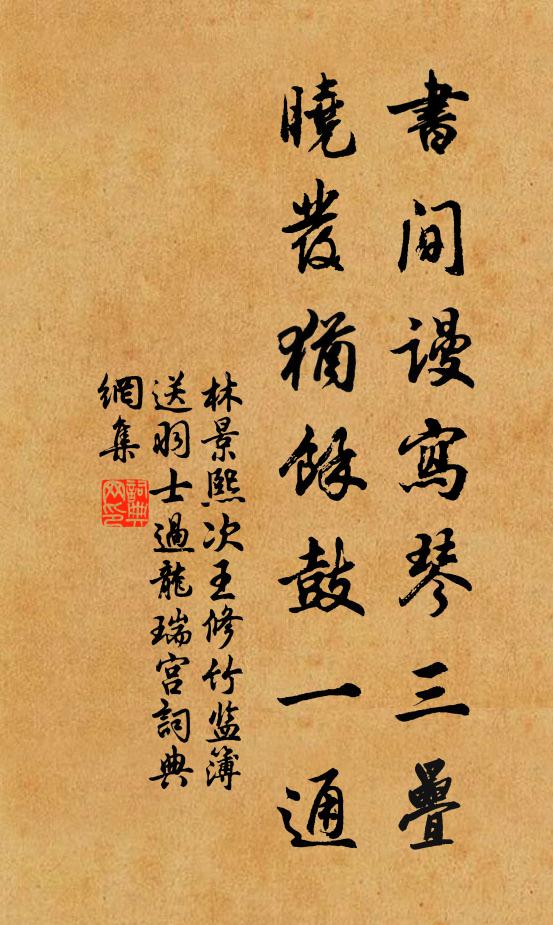 書間謾寫琴三疊
曉發猶餘鼓一通
林景熙次王修竹监簿
送羽士過龍瑞宮詞典
網集
詞典網印